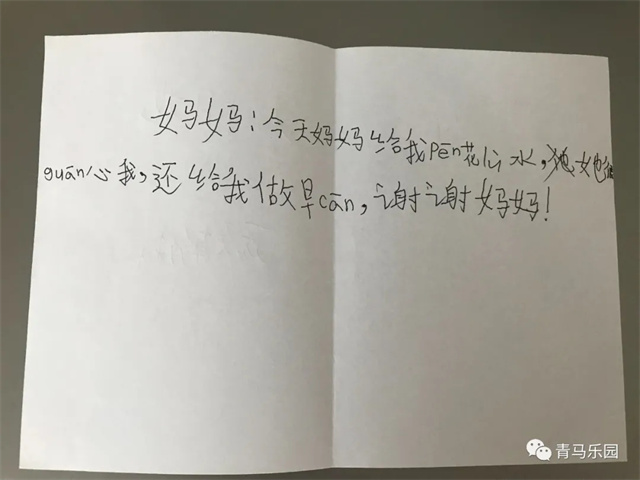 妈妈:今天妈妈给我Pēn花心水,她她很
guān心我,还给我做早cān,谢谢妈妈!
青马乐园